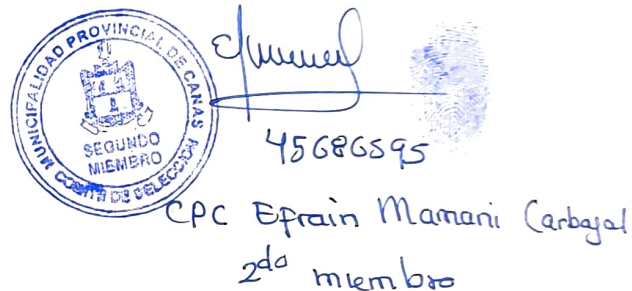 MUNICIPALIDAD PROVINCIAL DE CANAS
SEGUNDO
MIEMBRO
COMITÉ DE SELECCIÓN
45686595
CPC Efrain Mamani Carbajal
2do miembro